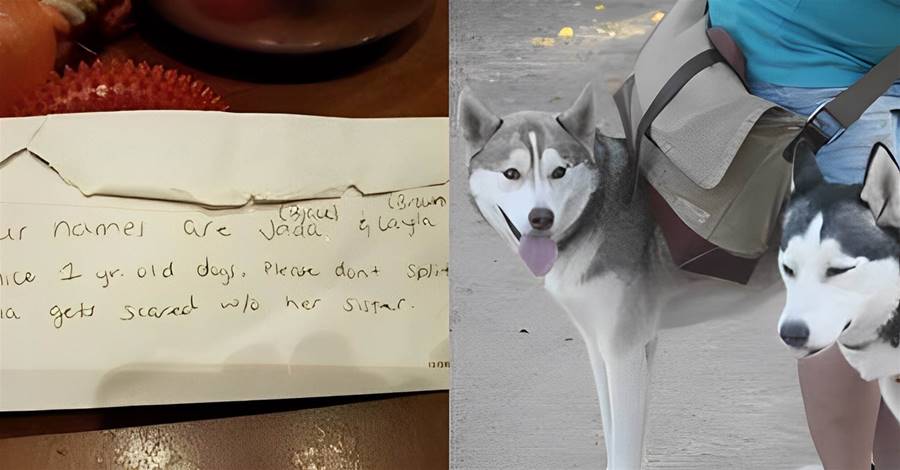 (Black) (Brown
ur names are Jada & Layla
nice 1 yr. old dogs. Please don't split
gets scared w/o her sister.